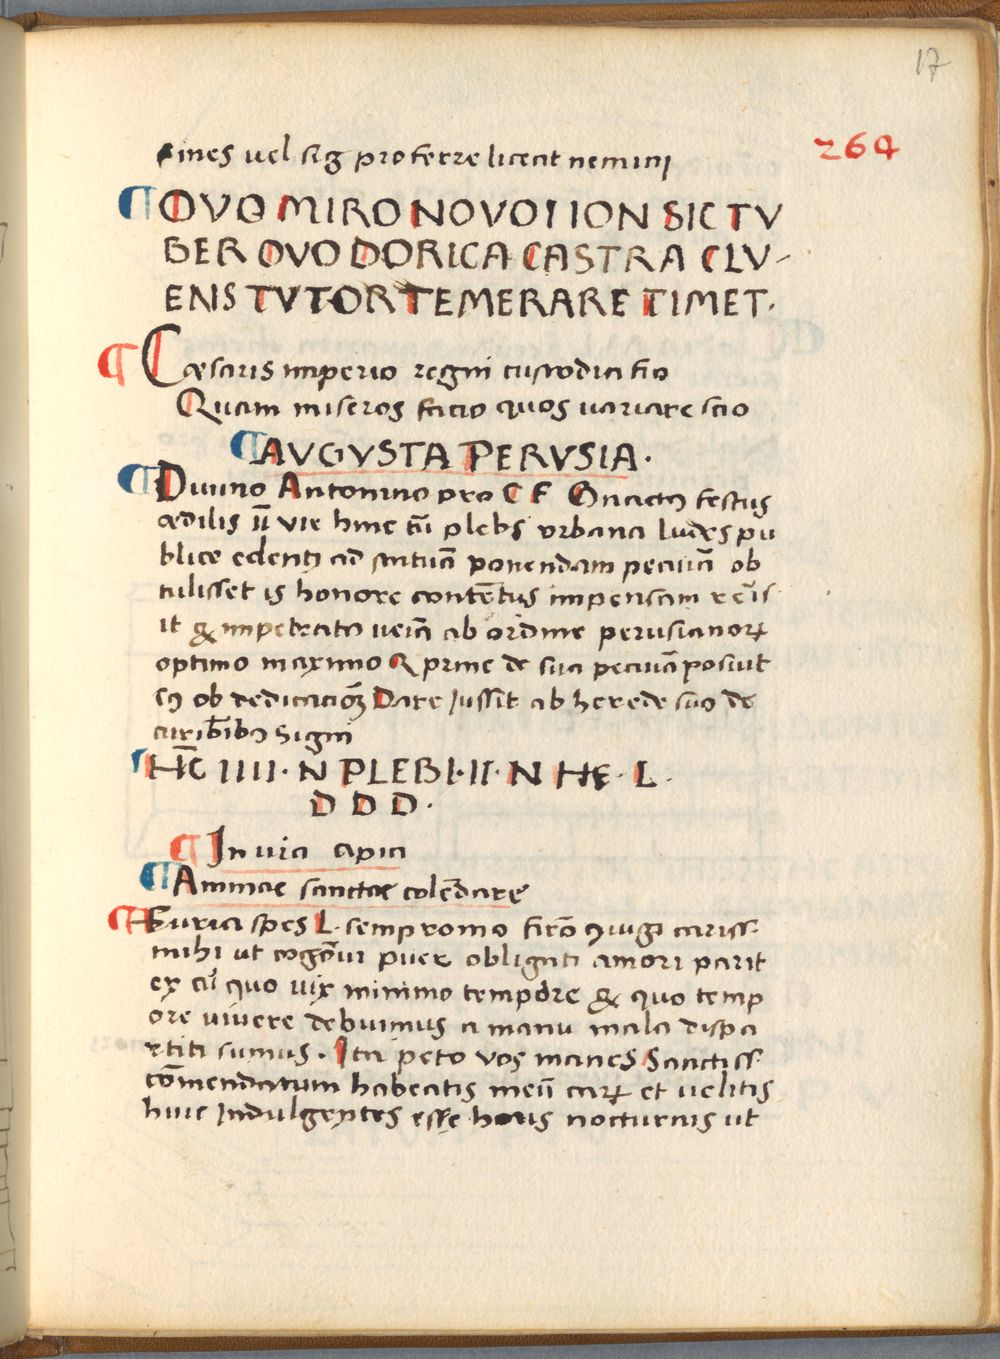 17
264
fines vel sig proferre liceat nemini
¶ QVO MIRO NOVOTION SIC TV
BER QVO DORICA CASTRA CLV-
ENS TVTOR TEMERARE TIMET.
¶ Cæsaris imperio regni custodia fio
Quam miseros facio quos variare scio
¶ AVGVSTA PERVSIA.
¶ Divino Antonino pro C F festus
ædilis II vir hinc cũ plebs urbana ludes pu
blice edentꝫ ad statuã ponendam pecuiã ob
tulisset is honore contẽtus impensam remis
it & impetrata veiã ab ordine perusianorꝝ
optimo maximo Q prine de sua pecuiã posiut
cꝫ ob dedicacioꝫ Dare Jussit ab herede suo de
curibꝫ Signi
HC IIII. N PLEBI. II. N HE. L.
D D D.
¶ In via apia
¶ Animae sanctae colẽdare
¶ Furia spes L. sempromo firõ ꝯiugi cariss.
mihi ut cognõui puer obligati amori parit
ex cũ quo vix minimo tempore & quo temp
ore vivere debuimus a manu mala dispa
rtiti sumus. Ita peto vos manes Sanctiss.
cõmendatum habeatis meũ carꝝ et velitis
huic Indulgentes esse horis nocturnis ut